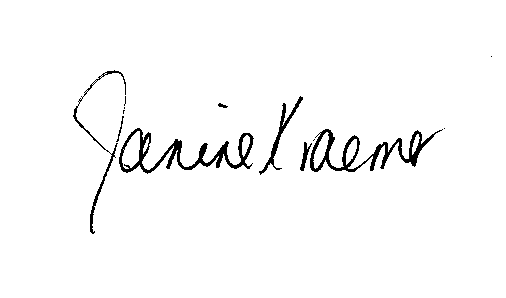 Janine Kraemer